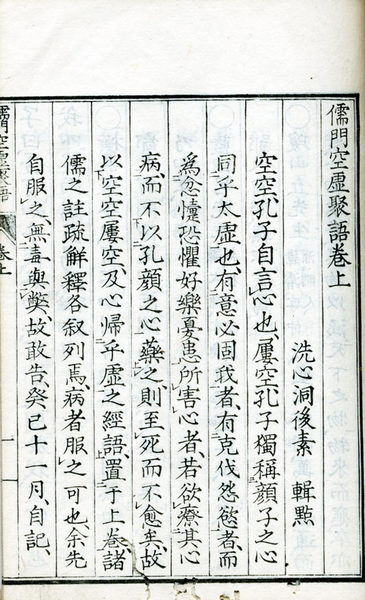 儒門空虛聚語卷上
洗心洞後素 輯點
空空孔子自言心也、屢空孔子獨稱顏子之心
同乎太虛也、有意必固我者、有克伐怨慾者、而
爲忿懥恐懼好樂憂患所害心者、若欲療其心
病、而不以孔顏之心藥之、則至死而不愈矣、故
以空空屢空及心歸乎虛之經語、置于上卷、諸
儒之註疏解釋各叙列焉、病者服之可也、余先
自服之、無毒與弊、故敢告、癸巳十一月、自記、
儒門空虛聚語 卷上 一